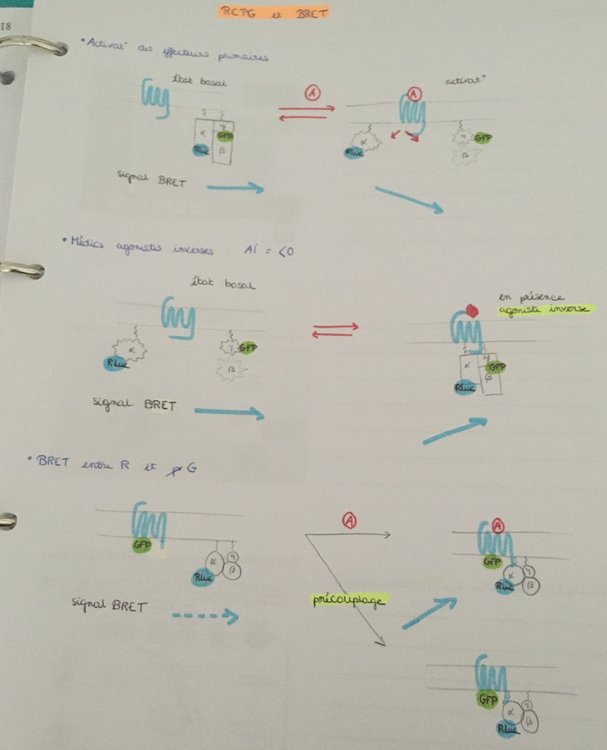 18
RCPG et BRET
• Activat° des effecteurs primaires
état basal
A
activat°
A
α γ GFP
Rluc β
α
Rluc
γ GFP
β
signal BRET
• Médics agonistes inverses. Ai = <0
état basal
en présence
agoniste inverse
α
Rluc
γ GFP
β
α γ GFP
Rluc β
signal BRET
• BRET entre R et pG
GFP
α γ
Rluc β
A
A
GFP
α γ
Rluc β
signal BRET
précouplage
GFP
α γ
Rluc β